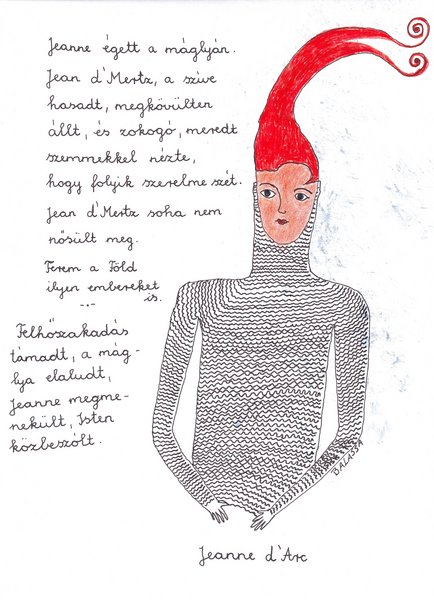 Jeanne égett a máglyán.
Jean d'Mertz, a szíve
hasadt, megkövülten
állt, és zokogó, meredt
szemmekkel nézte,
hogy folyik szerelme szét.
Jean d'Mertz soha nem
nősült meg.
Terem a Föld
ilyen embereket
is.
Felhőszakadás
támadt, a mág-
lya elaludt,
Jeanne megme-
nekült, Isten
közbeszólt.
BALASSA
Jeanne d'Arc